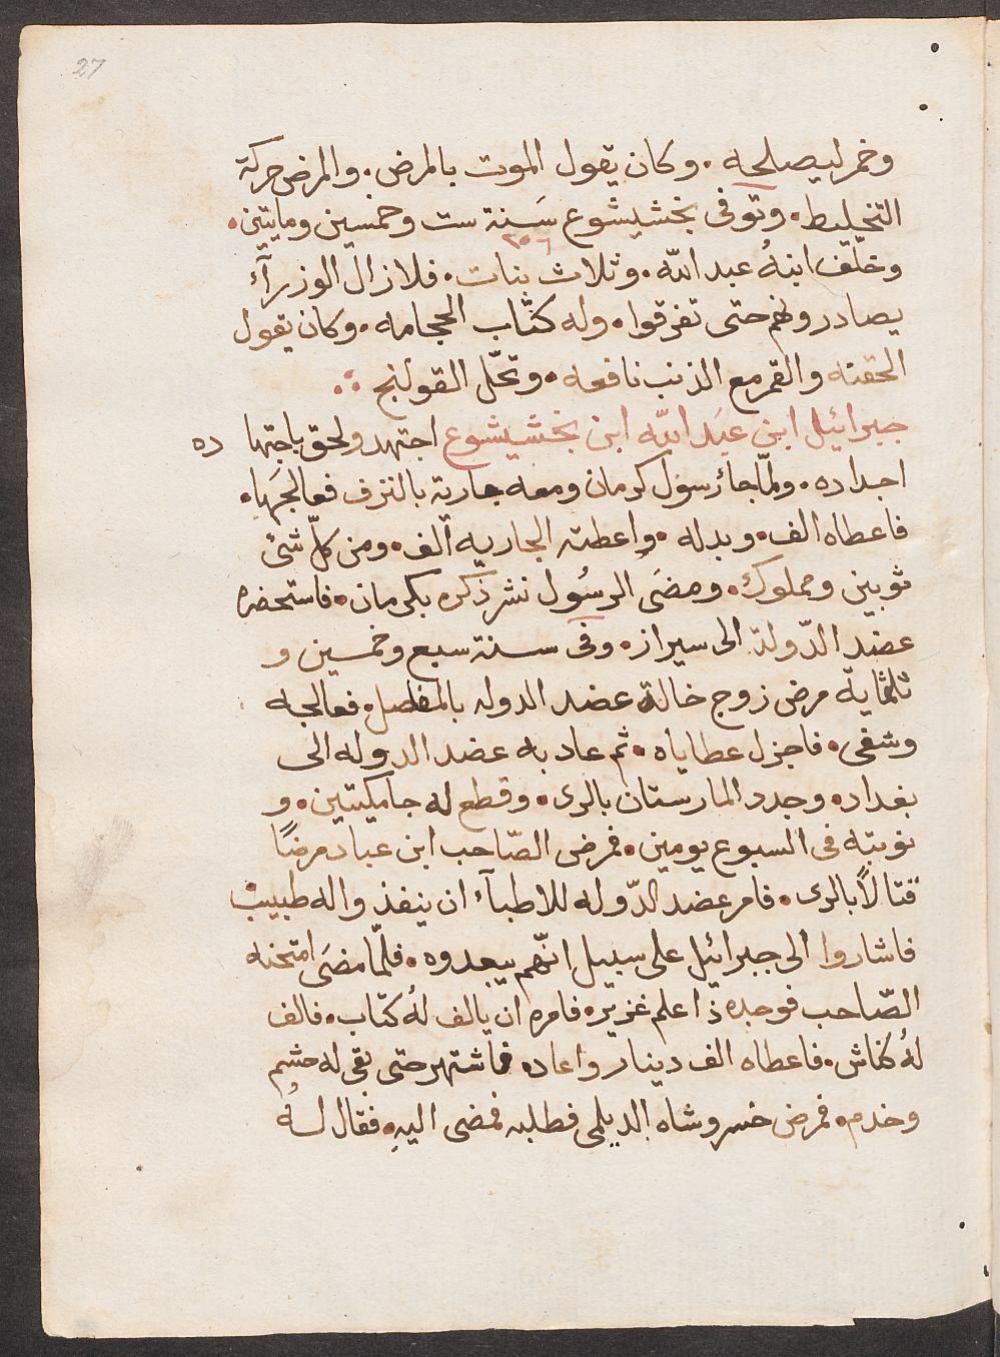 27
وخمر ليصلحه . وكان يقول الموت بالمرض . والمرض حركة
التخليط . وتوفى بختيشوع سَنة ست وخمسين ومايتين .
٢٥٦
وخلّف ابنهُ عبد الله . وثلاث بنات . فلا زال الوزرآء
يصادرونهم حتى تفرقوا . وله كتاب الحجامه . وكان يقول
الحقنه والقمر مع الذنب نافعه . وتحّل القولنج
جبرائيل ابن عَبَد الله ابن بختيشوع اجتهد ولحق باجتهاده
اجداده . ولمّا جاء رسول كرمان ومعه جارية بالنزف فعالجَها .
فاعطاه الف . وبدله . واعطته الجاريه الف . ومن كلّ شئ
ثوبين ومملوك . ومضَى الرسُول نشر ذكره بكرمان . فاستحضره
عضد الدّولة الى سيراز . وفى سنة سبع وخمسين و
ثلثماية مرض زوج خالة عضد الدوله بالمفاصل . فعالجه
وشفى . فاجزل عطاياه . ثم عاد به عضد الدوله الى
بغداد . وجدد المارستان بالرى . وقطع له جامكيتين . و
نوبته فى السبوع يومين . فمرض الصّاحب ابن عباد مرضًا
قتالاً بالرى . فامر عضد الدّوله للاطبآء ان ينفذوا له طبيب
فاشاروا الى جبرائيل على سبيل انّهم يبعدوه . فلمّا مضَى امتحنه
الصّاحب فوجده ذا علم غزير . فامره ان يالف لهُ كتاب . فالف
لهُ كناش . فاعطاه الف دينار واعاده فاشتهر حتى بقى له حشم
وخدم . فمرض خسروشاه الديلمى فطلبه فمضى اليهِ . فقال لهُ